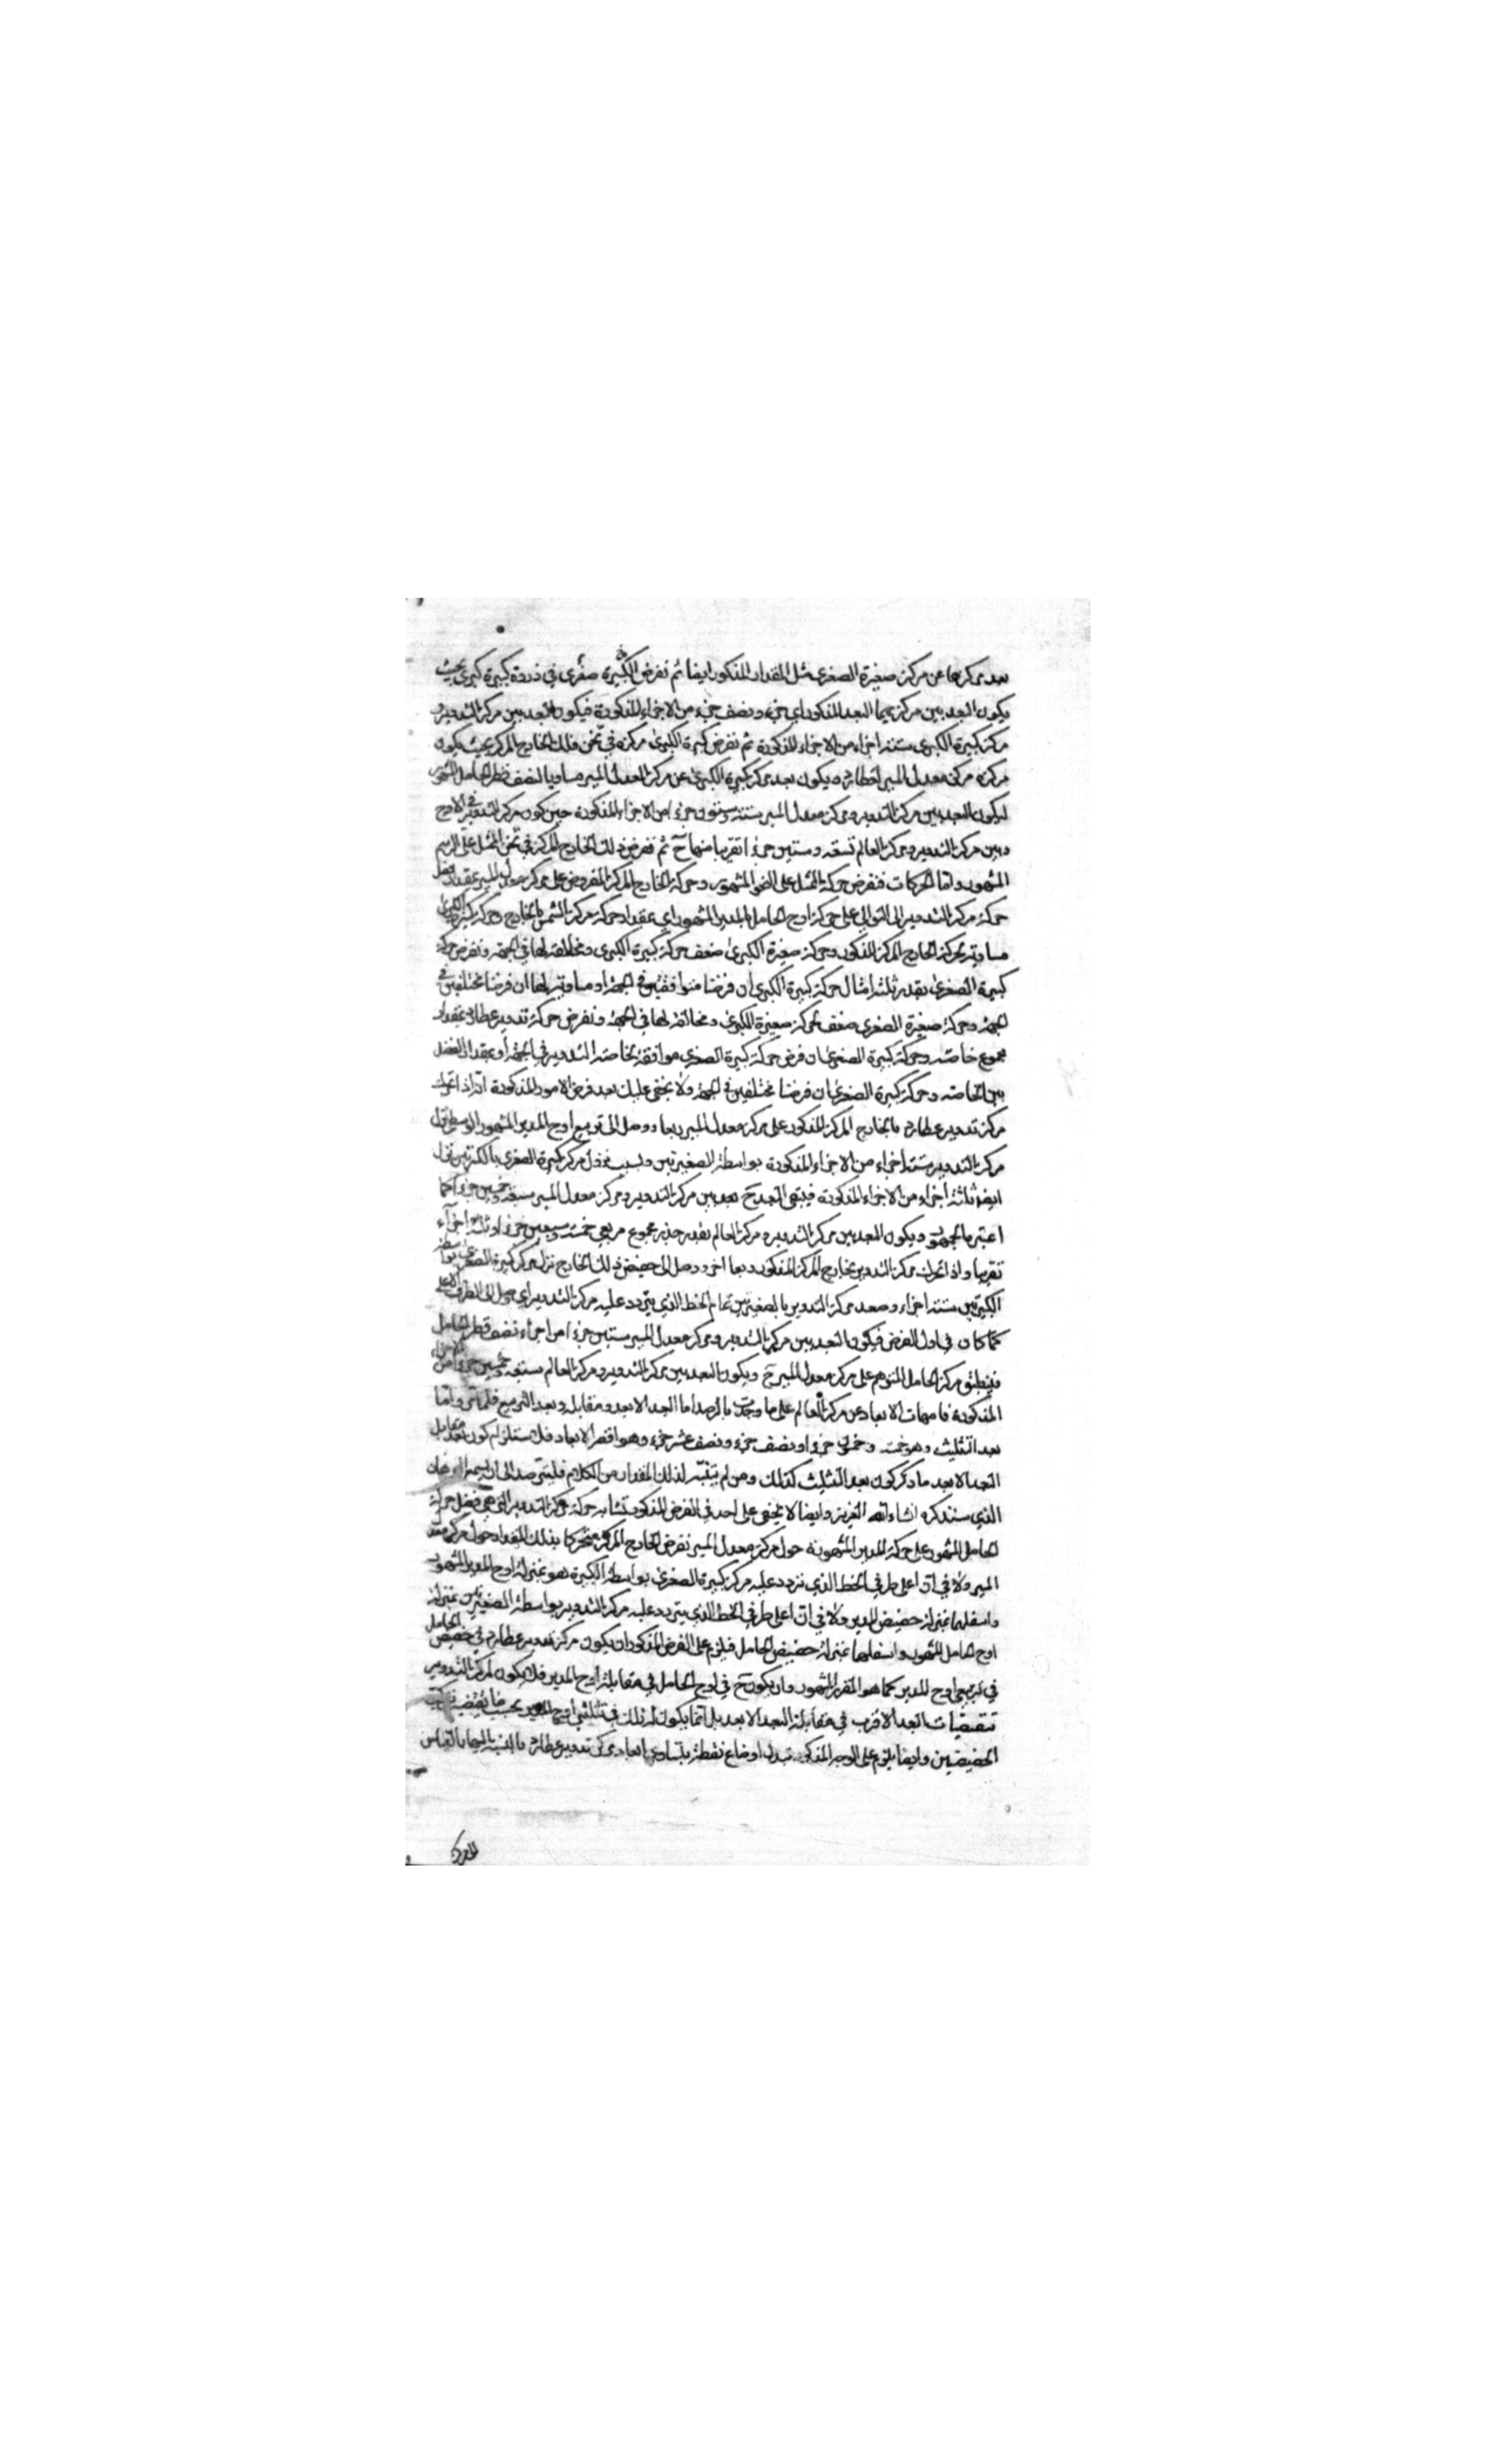 بعد مركزها عن مركز صغيرة الصغرى مثل المقدار المذكور ايضا ثم نفرض الكبيرة صغرى في ذروة كبيرة كبرى بحيث
يكون البعد بين مركزيهما البعد المذكور اي جزء ونصف جزء من الاجزاء المذكورة فيكون البعد بين مركز التدوير و
مركز كبيرة الكبرى ستة اجزاء من الاجزاء المذكورة ثم نفرض كبيرة الكبرى مركزه في ثخن فلك الخارج المركز بحيث يكون
مركزه مركز معدل المسير لعطارد ويكون بعد مركز كبيرة الكبرى عن مركز المعدل المسير مساويا لنصف قطر الحامل المشهور
ليكون البعد بين مركز التدوير ومركز معدل المسير ستة وستون جزءا من الاجزاء المذكورة حين كون مركز التدوير في الاوج
وبين مركز التدوير ومركز العالم تسعة وستين جزءا تقريبا منها ح ثم نفرض ذلك الخارج المركز في ثخن الممثل على الرسم
المشهور واما الحركات فنفرض حركة الممثل على النحو المشهور وحركة الخارج المركز المفروض على مركز معدل المسير بقدر فضل
حركة مركز التدوير الى التوالي على حركة اوج الحامل بالمدير المشهور اي بمقدار حركة مركز الشمس بالخارج وحركة كبيرة الكبرى
مساوية لحركة الخارج المركز المذكور وحركة صغيرة الكبرى ضعف حركة كبيرة الكبرى ومخالفة لها في الجهة ونفرض حركة
كبيرة الصغرى بقدر ثلثة امثال حركة كبيرة الكبرى ان فرضنا متوافقين في الجهة او مساوية لها ان فرضنا مختلفين في
الجهة وحركة صغيرة الصغرى ضعف لحركة صغيرة الكبرى ومخالفة لها في الجهة ونفرض حركة تدوير عطارد بمقدار
مجموع خاصته وحركة كبيرة الصغرى ان فرض حركة كبيرة الصغرى موافقة لخاصة التدوير في الجهة او بمقدار الفضل
بين الخاصة وحركة كبيرة الصغرى ان فرضنا مختلفين في الجهة ولا يخفى عليك بعد فرض الامور المذكورة انه اذا تحرك
مركز تدوير عطارد بالخارج المركز المذكور على مركز معدل المسير ربعا ووصل الى تربيع اوج المدير المشهور الوسطي نزل
مركز التدوير ستة اجزاء من الاجزاء المذكورة بواسطة الصغيرتين وبسبب نزول مركز كبيرة الصغرى بالكبرتين نزل
ايضا ثلثة اجزاء من الاجزاء المذكورة فيبقى البعد ح بعد بين مركز التدوير ومركز معدل المسير سبعة وخمسين جزءا كما
اعتبره الجمهور ويكون البعد بين مركز التدوير ومركز العالم بقدر جذر مجموع مربعي خمسة وسبعين جزءا وثلثة اجزاء
تقريبا واذا تحرك مركز التدوير بخارج المركز المذكور ربعا اخر ووصل الى حضيض ذلك الخارج نزل مركز كبيرة الصغرى بواسطة
الكبيرتين ستة اجزاء وصعد مركز التدوير بالصغيرتين تمام الخط الذي يتردد عليه مركز التدوير اي وصل الى الطرف الاعلى
كما كان في اول الفرض فيكون البعد بين مركز التدوير ومركز معدل المسير ستين جزءا من اجزاء نصف قطر الحامل
فينطبق مركز الحامل المتوهم على مركز معدل المسير ح ويكون البعد بين مركز التدوير ومركز العالم سبعة وخمسين جزءا من الاجزاء
المذكورة فامهات الابعاد عن مركز العالم على ما وجدت بالرصد اما البعد الابعد ومقابله وبعد التربيع فلما مر واما
بعد التثليث وهو خمسة وخمسون جزءا ونصف جزء ونصف عشر جزء وهو اقصر الابعاد فلاستلزام كون بعد مقابل
البعد الابعد ما ذكر كون بعد التثليث كذلك ومن لم يتنبه لذلك المقدار من الكلام فليتصد الى ان يسمع البرهان
الذي سنذكره انشاء الله العزيز وايضا لا يخفى على احد في الفرض المذكور تشابه حركة مركز التدوير التي هي فضل حركة
الحامل المشهور على حركة المدير المشهورة حول مركز معدل المسير نفرض الخارج المركز متحركا بذلك المقدار حول مركز معدل
المسير ولا في ان اعلى طرفي الخط الذي تردد عليه مركز كبيرة الصغرى بواسطة الكبيرة هو بمنزلة اوج المدير المشهور
واسفلها بمنزلة حضيض المدير ولا في ان اعلى طرفي الخط الذي يتردد عليه مركز التدوير بواسطة الصغيرتين بمنزلة
اوج الحامل المشهور واسفلها بمنزلة حضيض الحامل فيلزم على الفرض المذكور ان يكون مركز تدوير عطارد في حضيض الحامل
في تربيعي اوج المدير كما هو المقرر المشهور وان يكون ح في اوج الحامل في مقابلة اوج المدير فلا يكون لمركز التدوير
البعد الاقرب في مقابلة البعد الابعد بل انما يكون له ذلك في تثليثي اوج المدير بحسب ما يقتضيه
الحضيضين وايضا يلزم على الوجه المذكور تبدل اوضاع نقطة يتساوى ابعاد مركز تدوير عطارد بالنسبة اليها بالقياس